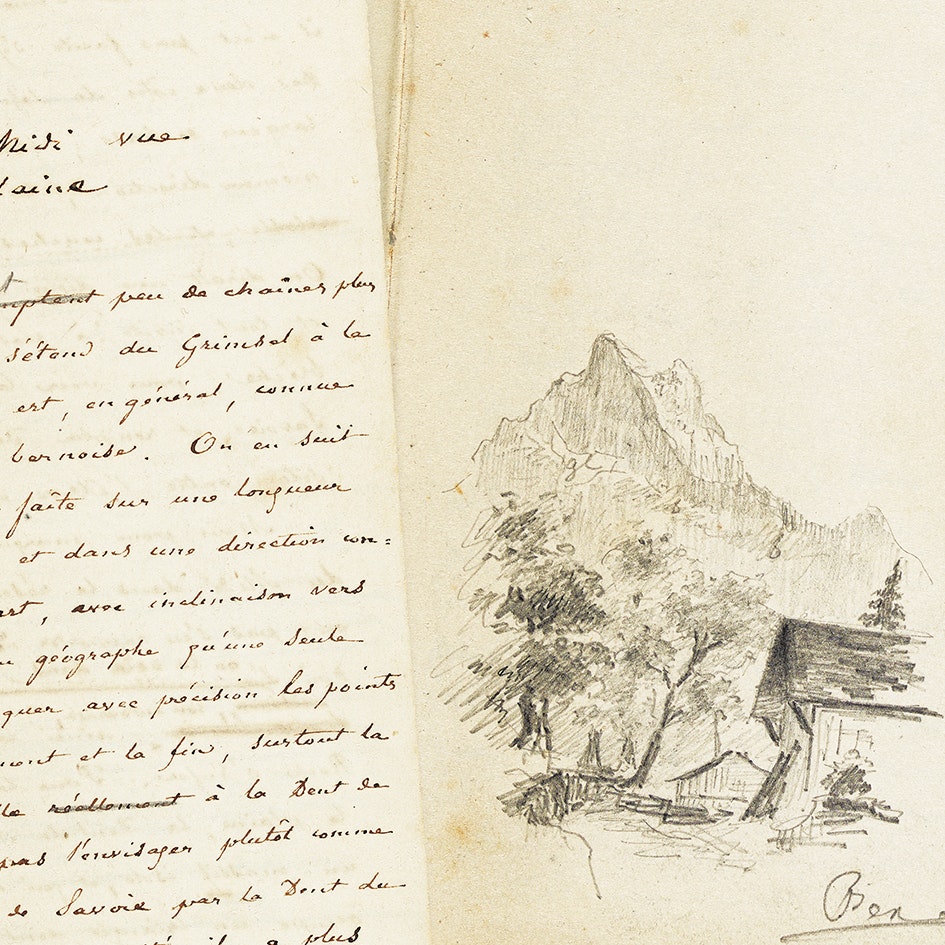 Midi vue
laine
peu de chaînes plus
s'étend du Grimsel à la
est, en général, connue
bernoise. On en suit
faîte sur une longueur
et dans une direction con=
avec inclinaison vers
géographe qu'une seule
quer avec précision les points
ment et la fin, surtout la
réellement à la Dent de
pas l'envisager plutôt comme
de Savoie par la Dent du
plus
Bex